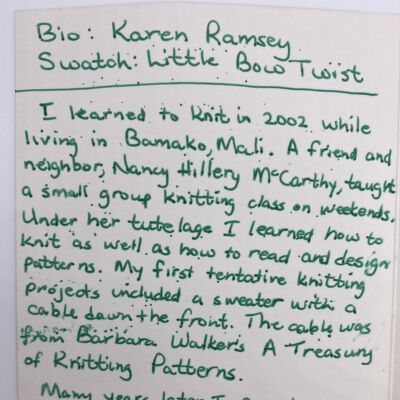 Bio: Karen Ramsey
Swatch: Little Bow Twist
I learned to knit in 2002 while
living in Bamako, Mali. A friend and
neighbor, Nancy Hillery McCarthy, taught
a small group knitting class on weekends.
Under her tutelage I learned how to
knit as well as how to read and design
patterns. My first tentative knitting
projects included a sweater with a
cable down the front. The cable was
from Barbara Walker's A Treasury
of Knitting Patterns.
Many years later I